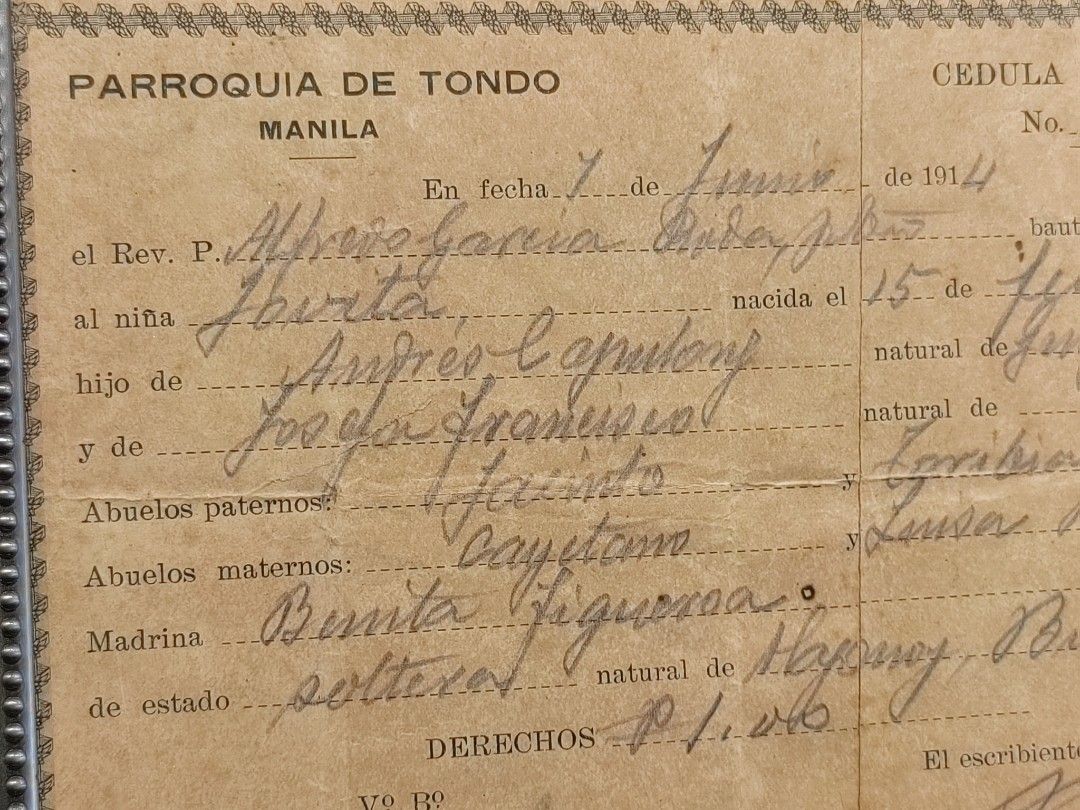 PARROQUIA DE TONDO
MANILA
CEDULA
No.
En fecha 7 de Junio de 1914
el Rev. P. Alfredo Garcia baut
al niña Jovita, nacida el 15 de
hijo de Andrés Capulong natural de
y de Francisco natural de
Abuelos paternos: Jacinto y
Abuelos maternos: Cayetano y Luisa
Madrina Benita Figueroa
de estado soltera natural de
DERECHOS ₱1.00
El escribiente
Vº Bº